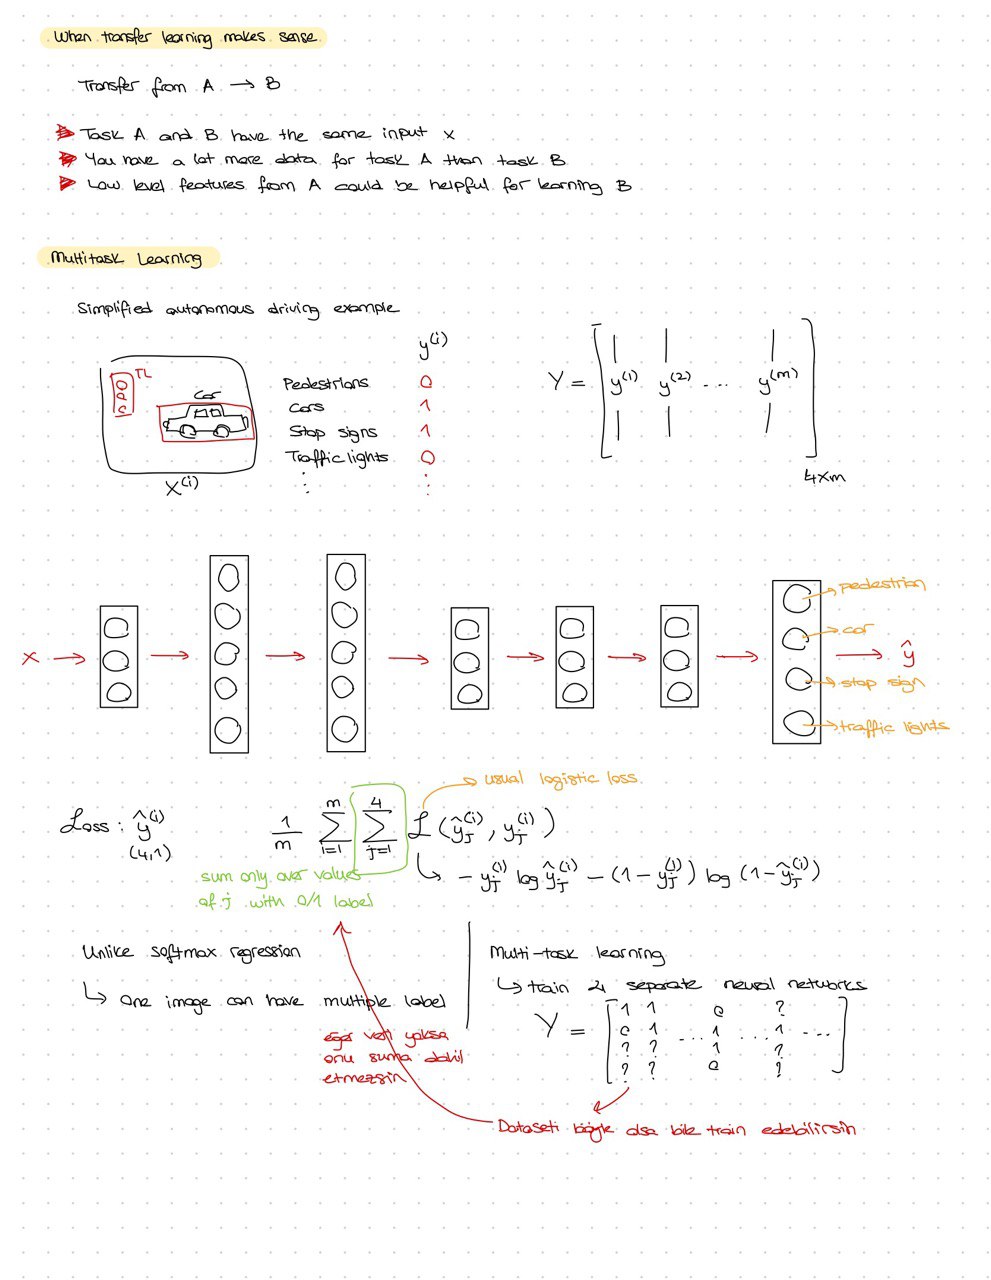 When transfer learning makes sense
Transfer from A → B
Task A and B have the same input x
You have a lot more data for task A than task B
Low level features from A could be helpful for learning B
Multitask Learning
Simplified autonomous driving example
y(i)
TL
Car
Pedestrians 0
Cars 1
Stop signs 1
Traffic lights 0
⋮ ⋮
X(i)
Y = [ y(1) y(2) ... y(m) ]
4xm
x → → → → → → → ŷ
pedestrian
car
stop sign
traffic lights
usual logistic loss
Loss : ŷ(i) 1/m Σ i=1 m Σ j=1 4 L (ŷj(i), yj(i))
(4,1)
- yj(i) log ŷj(i) - (1 - yj(i)) log (1 - ŷj(i))
sum only over values
of j with 0/1 label
Unlike softmax regression
↳ One image can have multiple label
eğer veri yoksa
onu suma dahil
etmezsin
Multi-task learning
↳ train 4 separate neural networks
Y = [ 1 1 0 ?
0 1 ... 1 ... 1 ...
? ? 1 ?
? ? 0 ? ]
Dataseti böyle olsa bile train edebilirsin